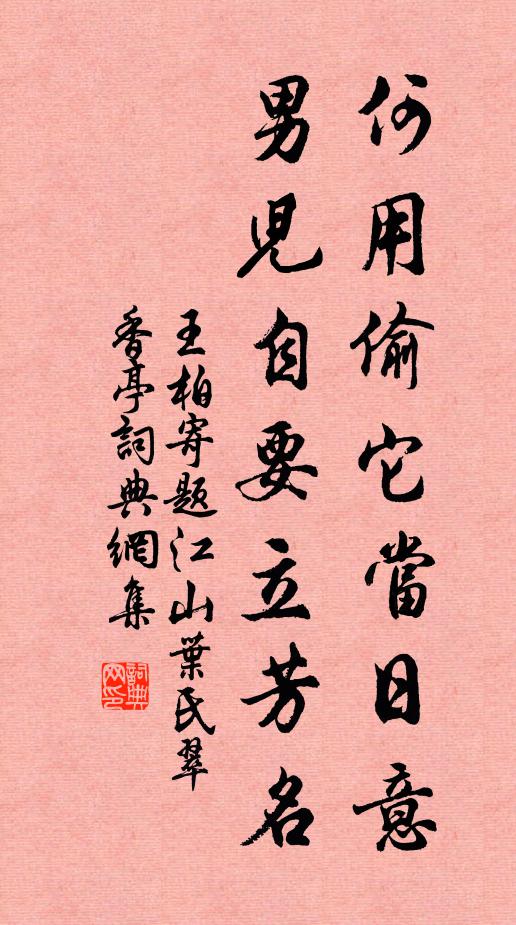 何用偷它當日意
男兒自要立芳名
王柏寄題江山葉氏翠
香亭詞典網集
詞典
网印